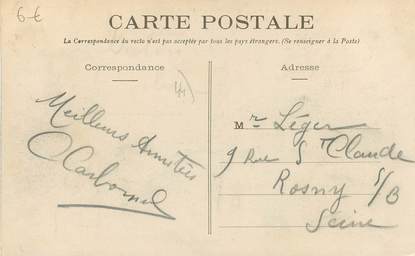 6-€
CARTE POSTALE
La Correspondance du recto n'est pas acceptée par tous les pays étrangers. (Se renseigner à la Poste)
Correspondance
Meilleures Amitiés
Adresse
Mr Léger
9 Rue St Claude
Rosny s/B
Seine